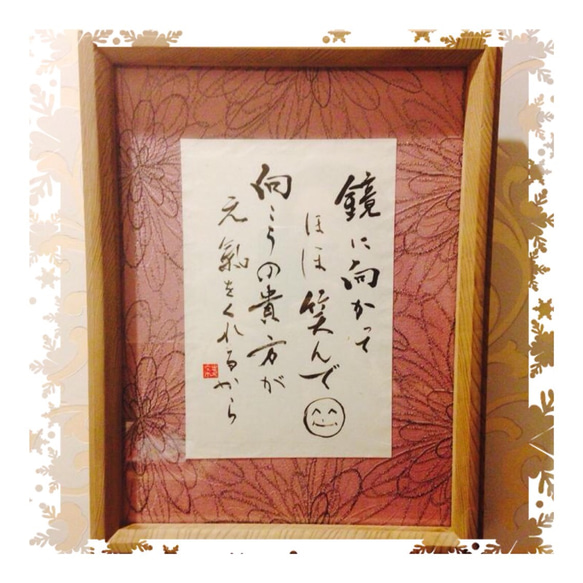 鏡に向かって
ほほ笑んで
向こうの貴方が
元気をくれるから